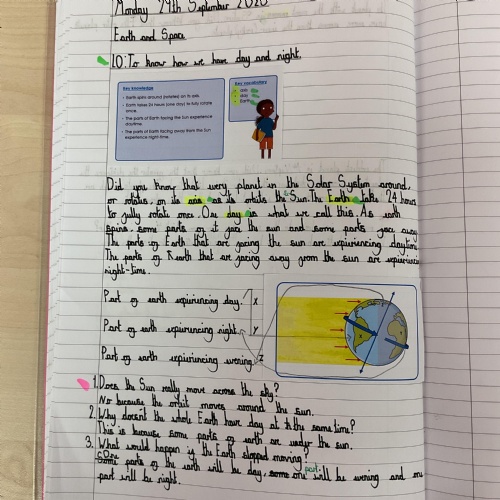 Monday 29th September 2025
Earth and Space
LO: To know how we have day and night.
Key knowledge
• Earth spins around (rotates) on its axis.
• Earth takes 24 hours (one day) to fully rotate once.
• The parts of Earth facing the Sun experience daytime.
• The parts of Earth facing away from the Sun experience night-time.
Key vocabulary
• axis
• day
• Earth
Did you know that every planet in the Solar System around,
or rotates, on its axis as its orbits the Sun. The Earth take 24 hours
to fully rotate once. One day is what we call this. As earth
spins some parts of it face the sun and some parts face away
The parts of Earth that are facing the sun are expiriencing daytime.
The parts of Earth that are facing away from the sun are expiriencing
night-time.
Part of earth expiriencing day. X
Part of earth expiriencing night. y
Part of earth expiriencing evening. z
1. Does the Sun really move across the sky?
No because the orbit moves around the sun.
2. Why doesnt the whole Earth have day at the same time?
This is because some parts of earth are under the sun.
3. What would happen if the Earth stopped moving?
parts of the earth will be day, some one part will be evening and one
part will be night.